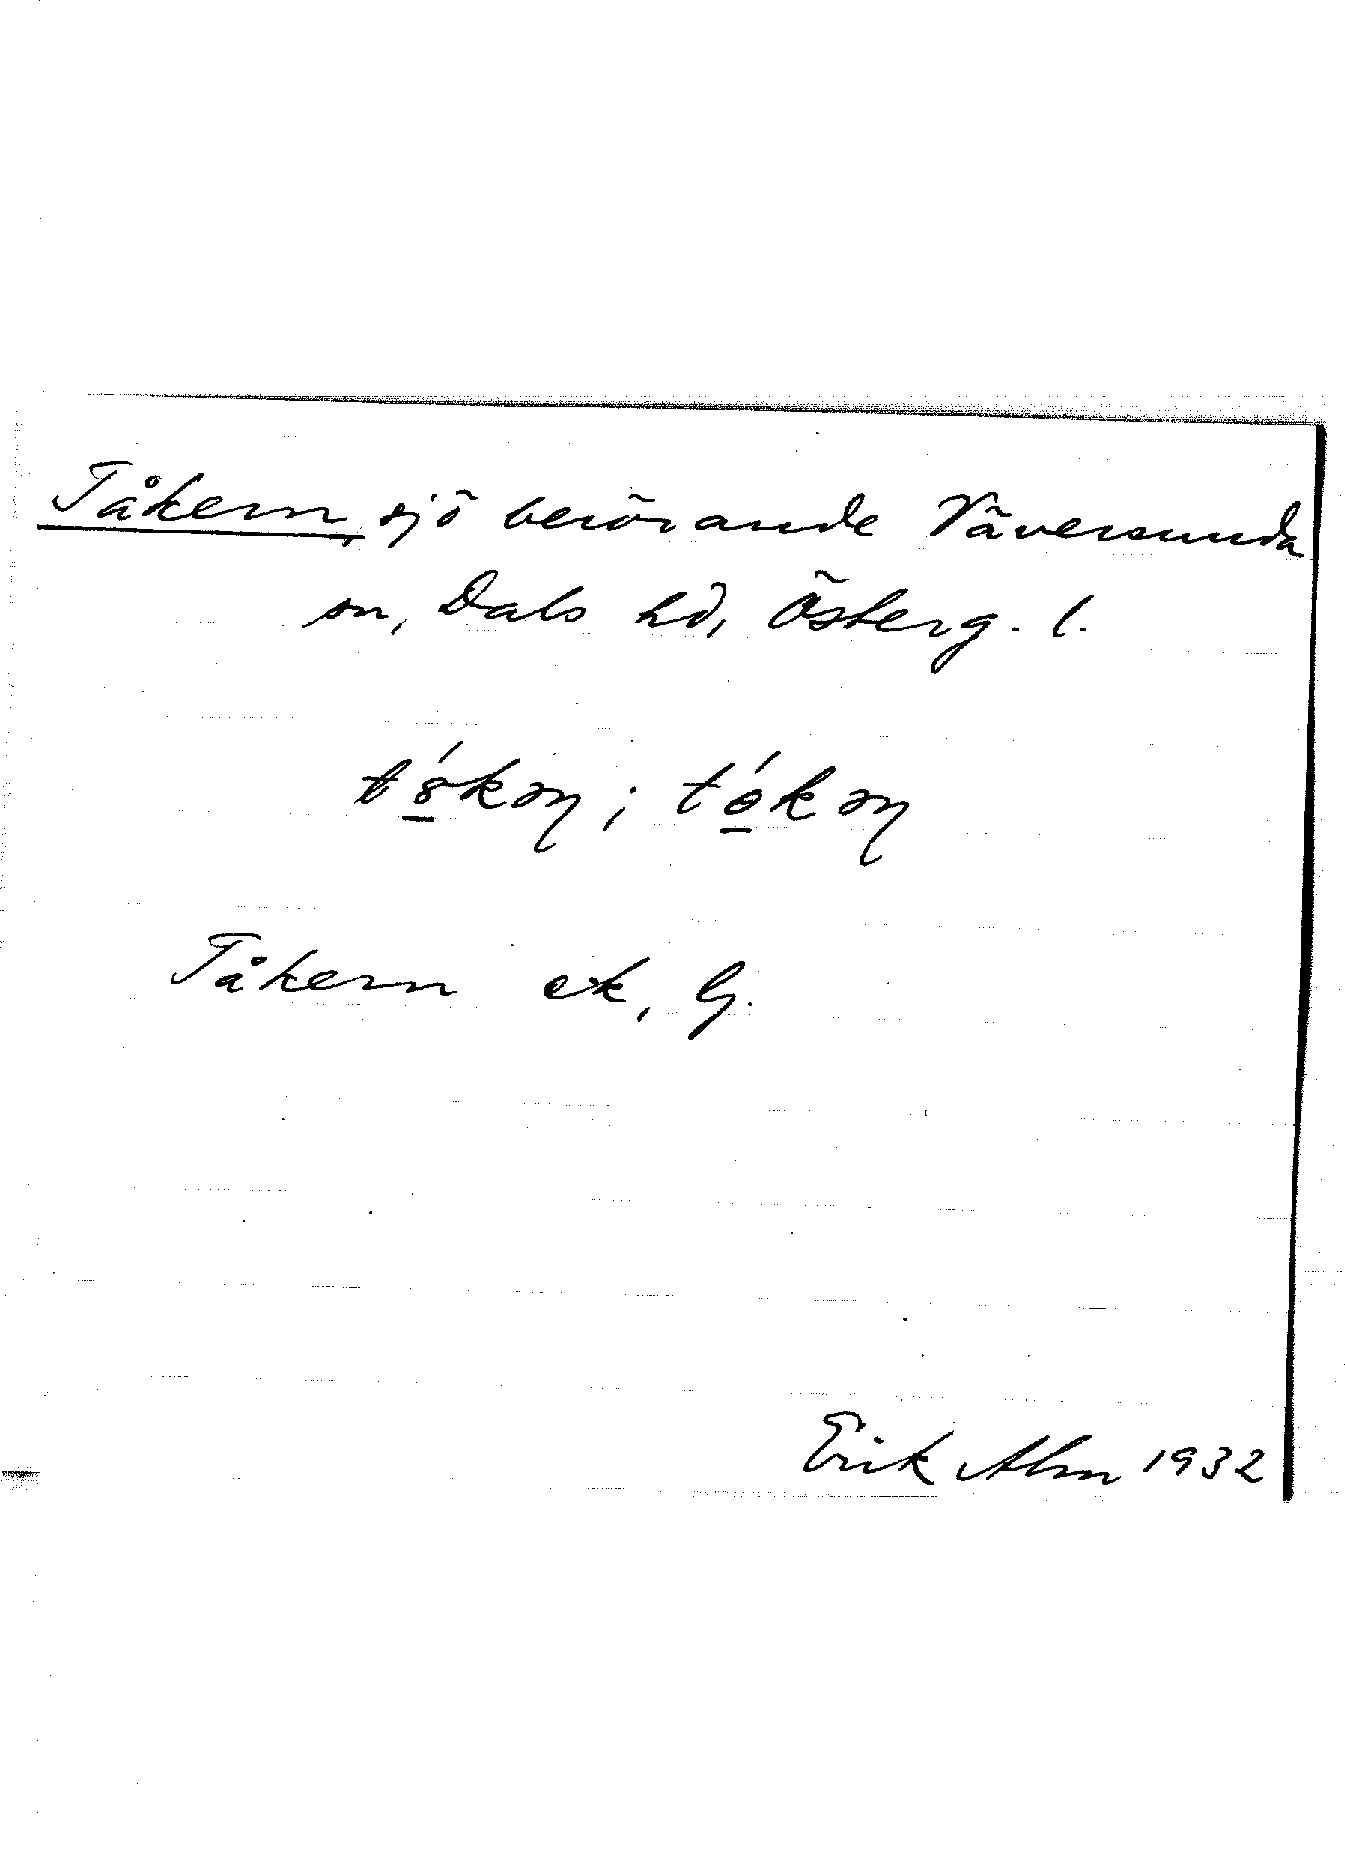 Tåkern, sjö berörande Väversunda
sn, Dals hd, Österg. l.
tókəɳ; tókəɳ
Tåkern ek, Gj.
Erik Alm 1932